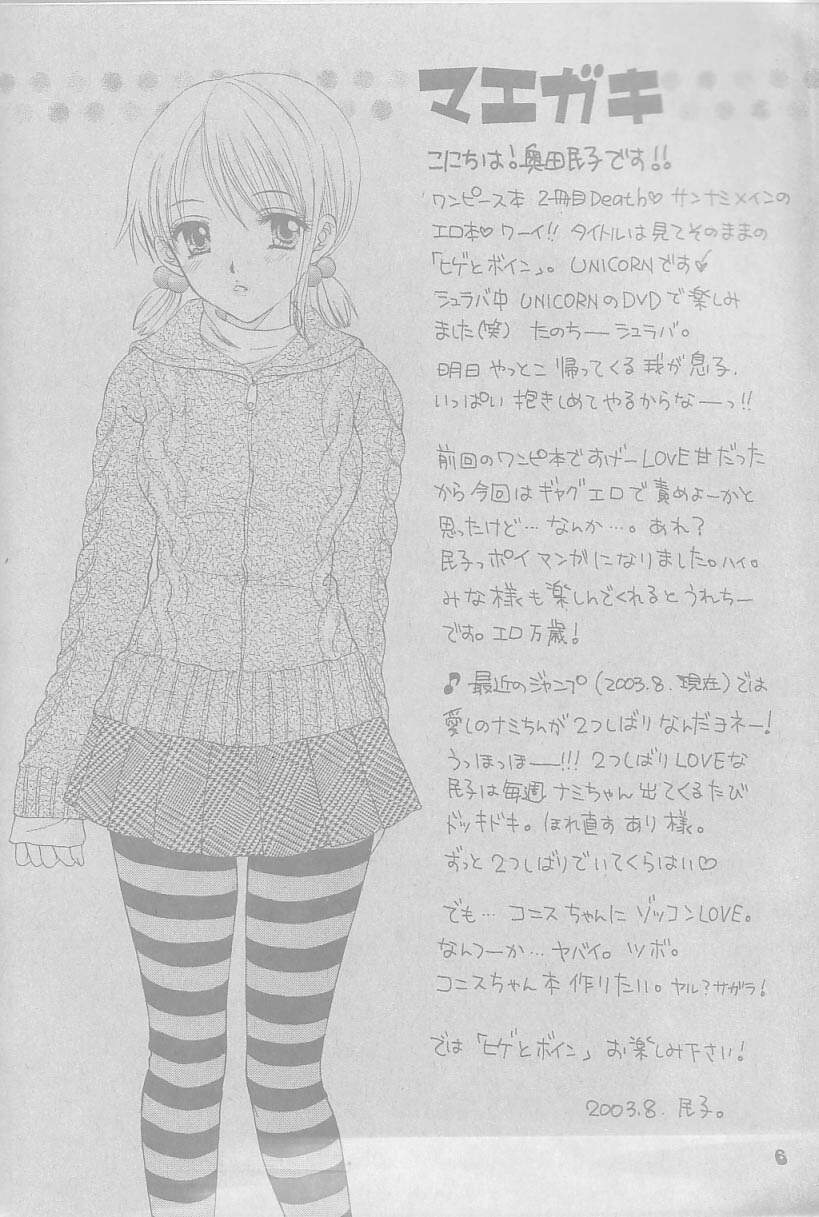 マエガキ
こにちは!奥田民子です!!
ワンピース本 2冊目Death♡ サンナミメインの
エロ本♡ワーイ!! タイトルは見てそのままの
「ヒゲとボイン」。UNICORNです
シュラバ中 UNICORNのDVDで楽しみ
ました(笑) たのちーーシュラバ。
明日 やっとこ 帰ってくる 我が息子。
いっぱい 抱きしめてやるからなーーっ!!
前回のワンピ本ですげーLOVE甘だった
から今回はギャグエロで責めよーかと
思ったけど…なんか…。あれ?
民子っポイマンガになりました。ハイ。
みな様も楽しんでくれるとうれちー
です。エロ万歳!
♪最近のジャンプ(2003.8.現在)では
愛しのナミちんが2つしばりなんだヨネー!
うっほっほーー!!! 2つしばりLOVEな
民子は毎週ナミちゃん出てくるたび
ドッキドキ。ほれ直す あり様。
ずっと2つしばりでいてくらはい♡
でも…コニスちゃんにゾッコンLOVE。
なんつーか…ヤバイ。ツボ。
コニスちゃん本 作りたい。ヤル?サガラ!
では「ヒゲとボイン」お楽しみ下さい!
2003.8.民子。
6